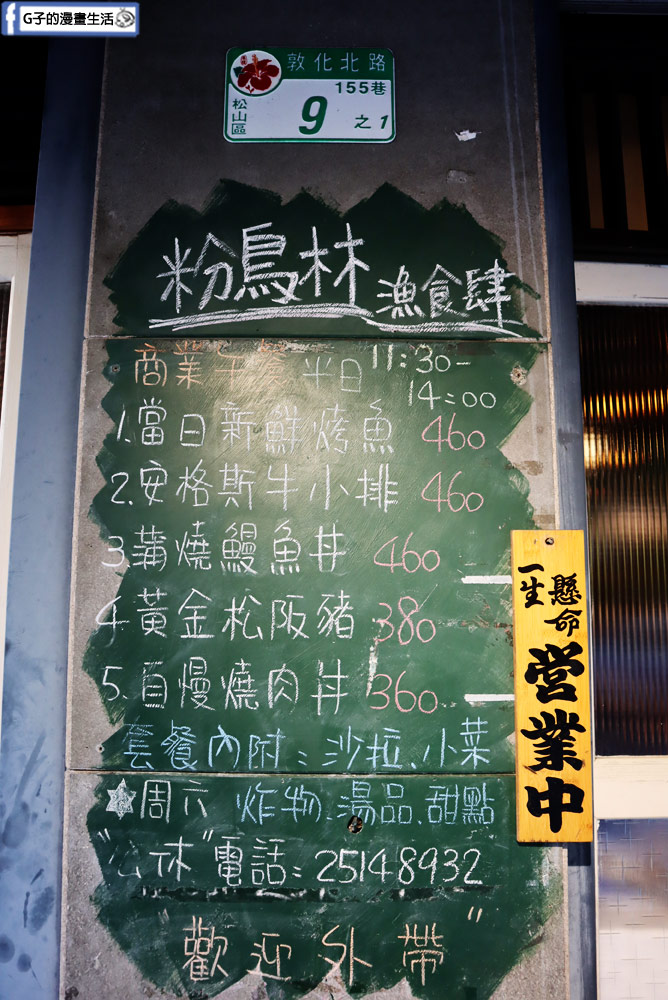 G子的漫畫生活
敦化北路
155巷
松山區
9 之1
粉鳥林 漁食肆
商業午餐 平日 11:30-
14:00
1.當日新鮮烤魚 460
2.安格斯牛小排 460
3.蒲燒鰻魚丼 460
4.黃金松阪豬 380
5.自慢燒肉丼 360
套餐內附:沙拉、小菜
周六 炸物、湯品、甜點
"公休"電話:25148932
"歡迎外帶"
一生懸命
営業中